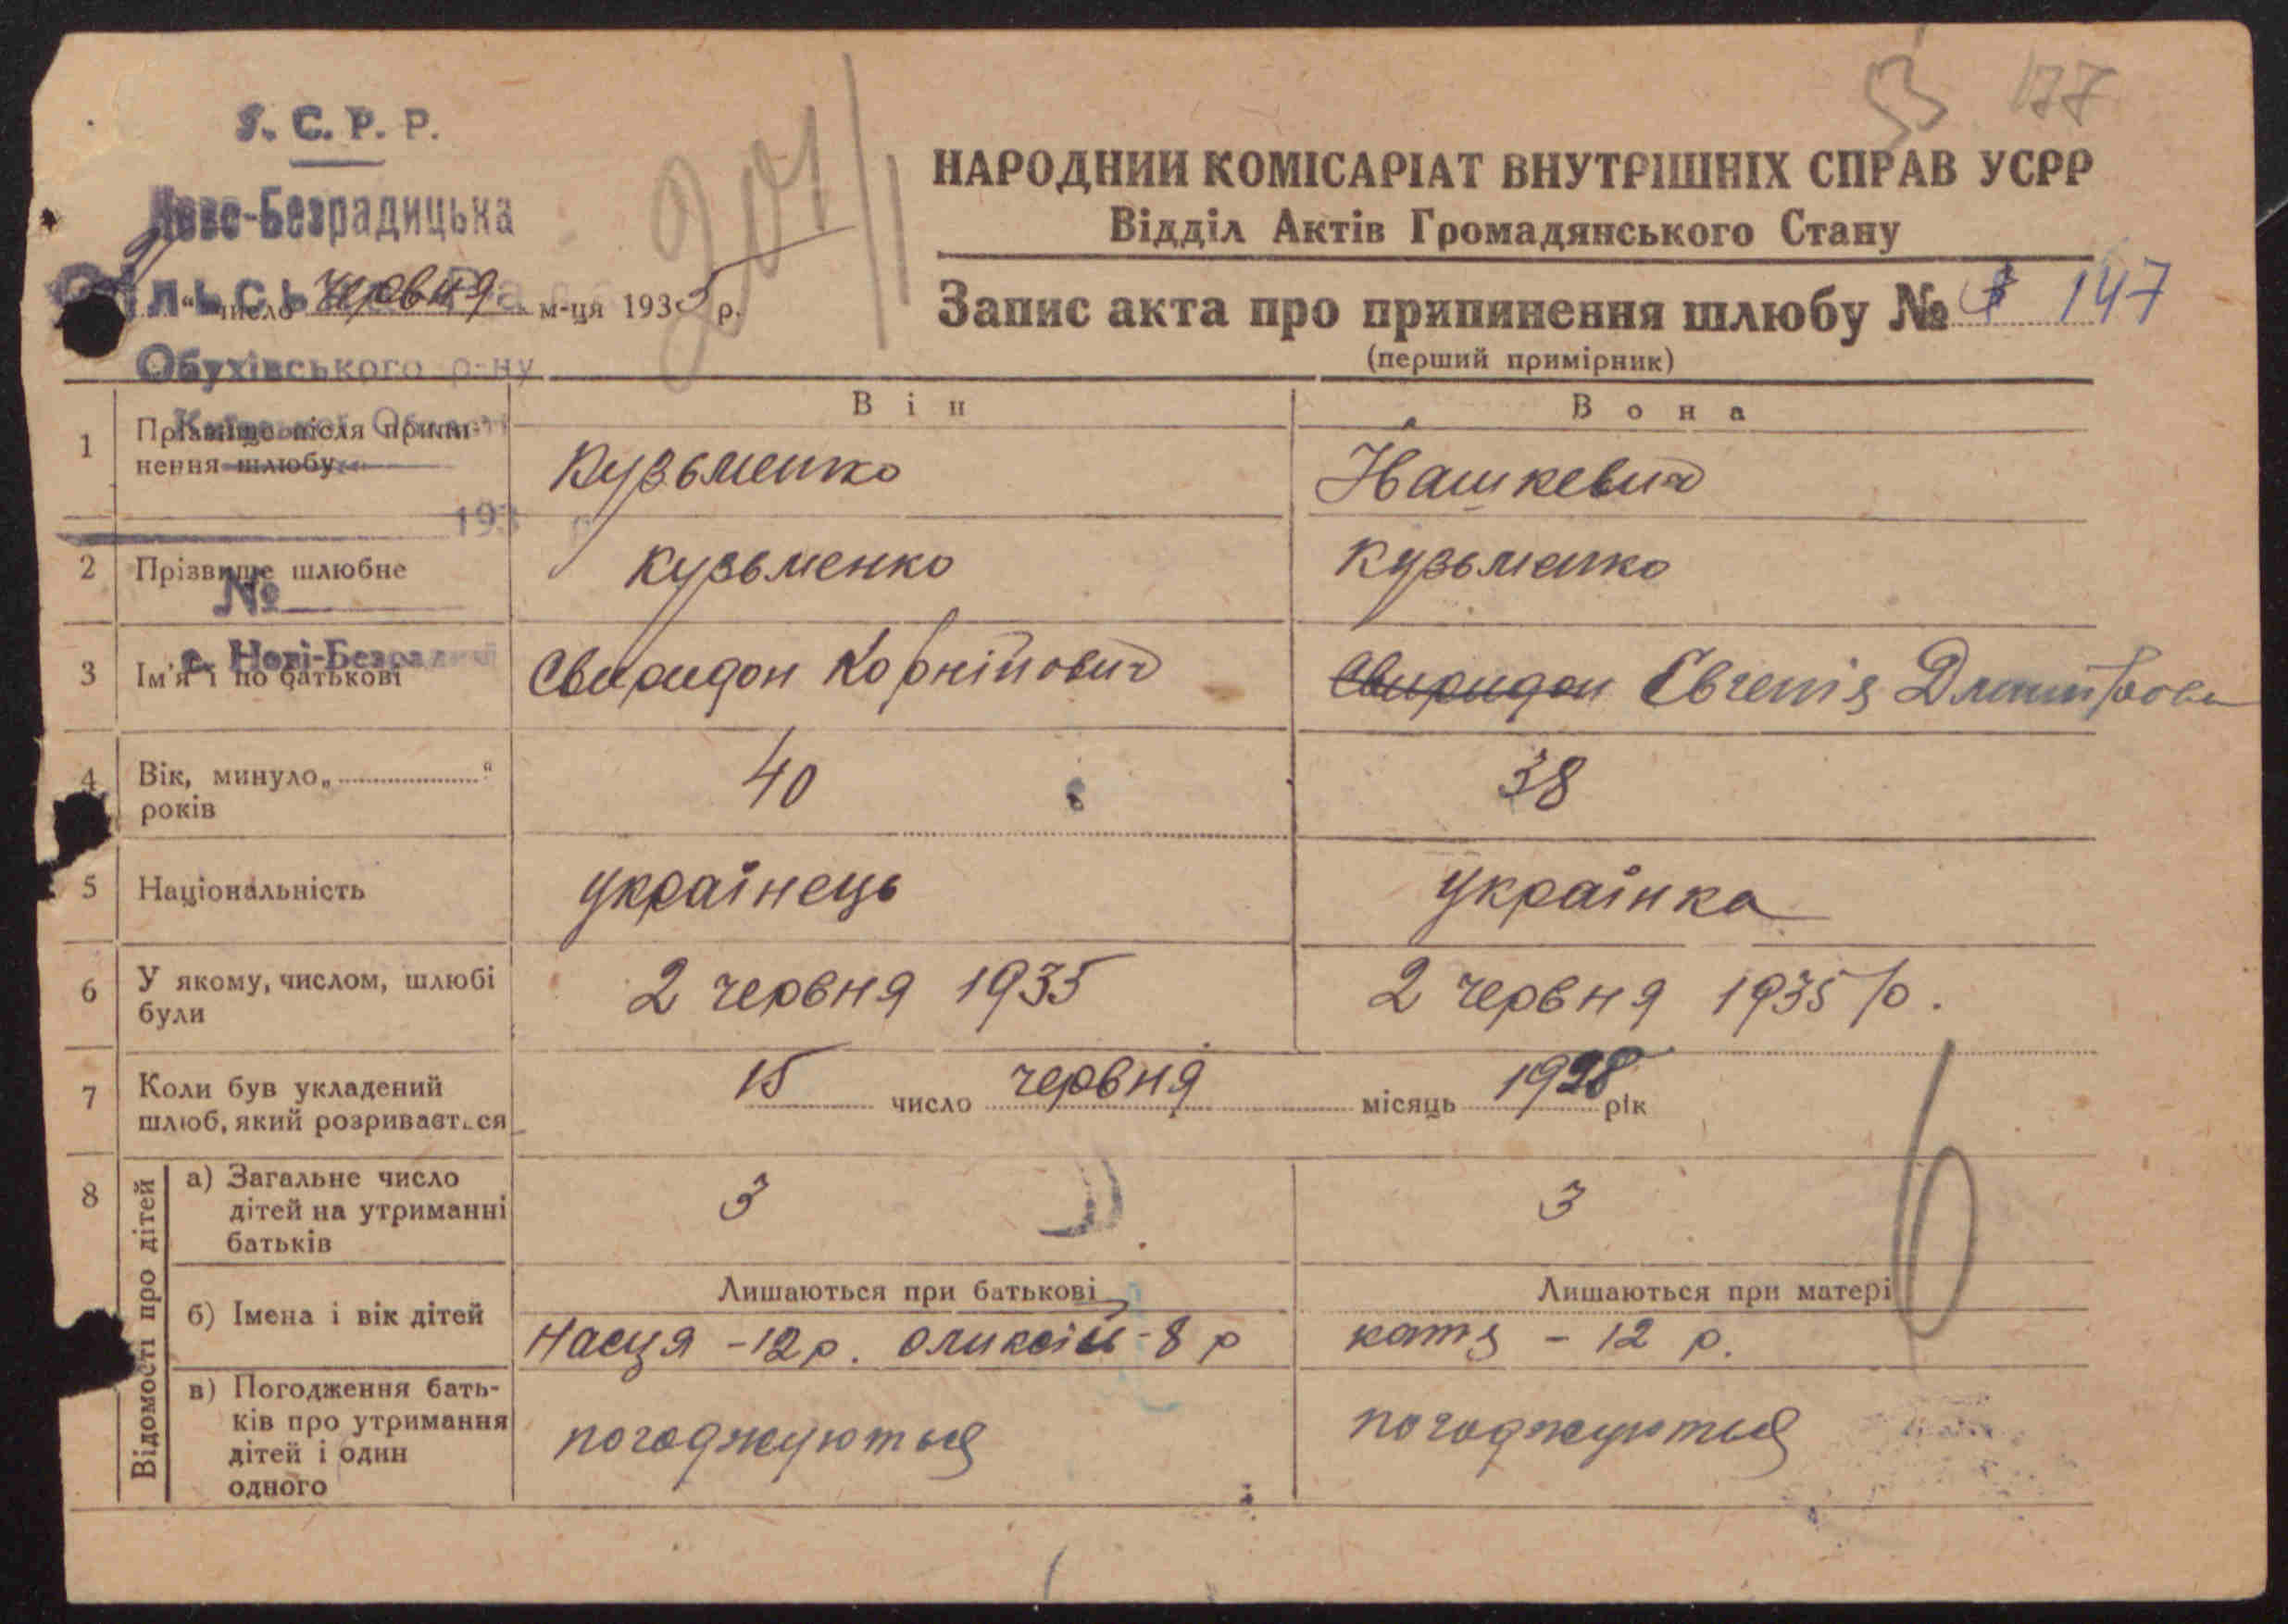 У. С. Р. Р.
Ново-Безрадицька
Сільська Рада
Обухівського р-ну
Київської Області
193 р
№
с. Нові-Безрадичі
201/1
53 177
НАРОДНИЙ КОМІСАРІАТ ВНУТРІШНІХ СПРАВ УСРР
Відділ Актів Громадянського Стану
2 “ число червня м-ця 1935 р.
Запис акта про припинення шлюбу № 147
(перший примірник)
Він Вона
1 Прізвище після припинення шлюбу Кузьменко Нашкевич
2 Прізвище шлюбне Кузьменко Кузьменко
3 Ім'я і по батькові Свиридон Корнійович Свиридон Євгенія Дмитрова
4 Вік, минуло „ “
років 40 38
5 Національність українець українка
6 У якому, числом, шлюбі
були 2 червня 1935 2 червня 1935 р.
7 Коли був укладений
шлюб, який розривається 15 число червня місяць 1928 рік
8 Відомості про дітей
а) Загальне число
дітей на утриманні
батьків 3 3
Лишаються при батькові Лишаються при матері
б) Імена і вік дітей Насця - 12 р. Оликсій - 8 р катя - 12 р.
в) Погодження бать-
ків про утримання
дітей і один
одного погоджуються погоджуються